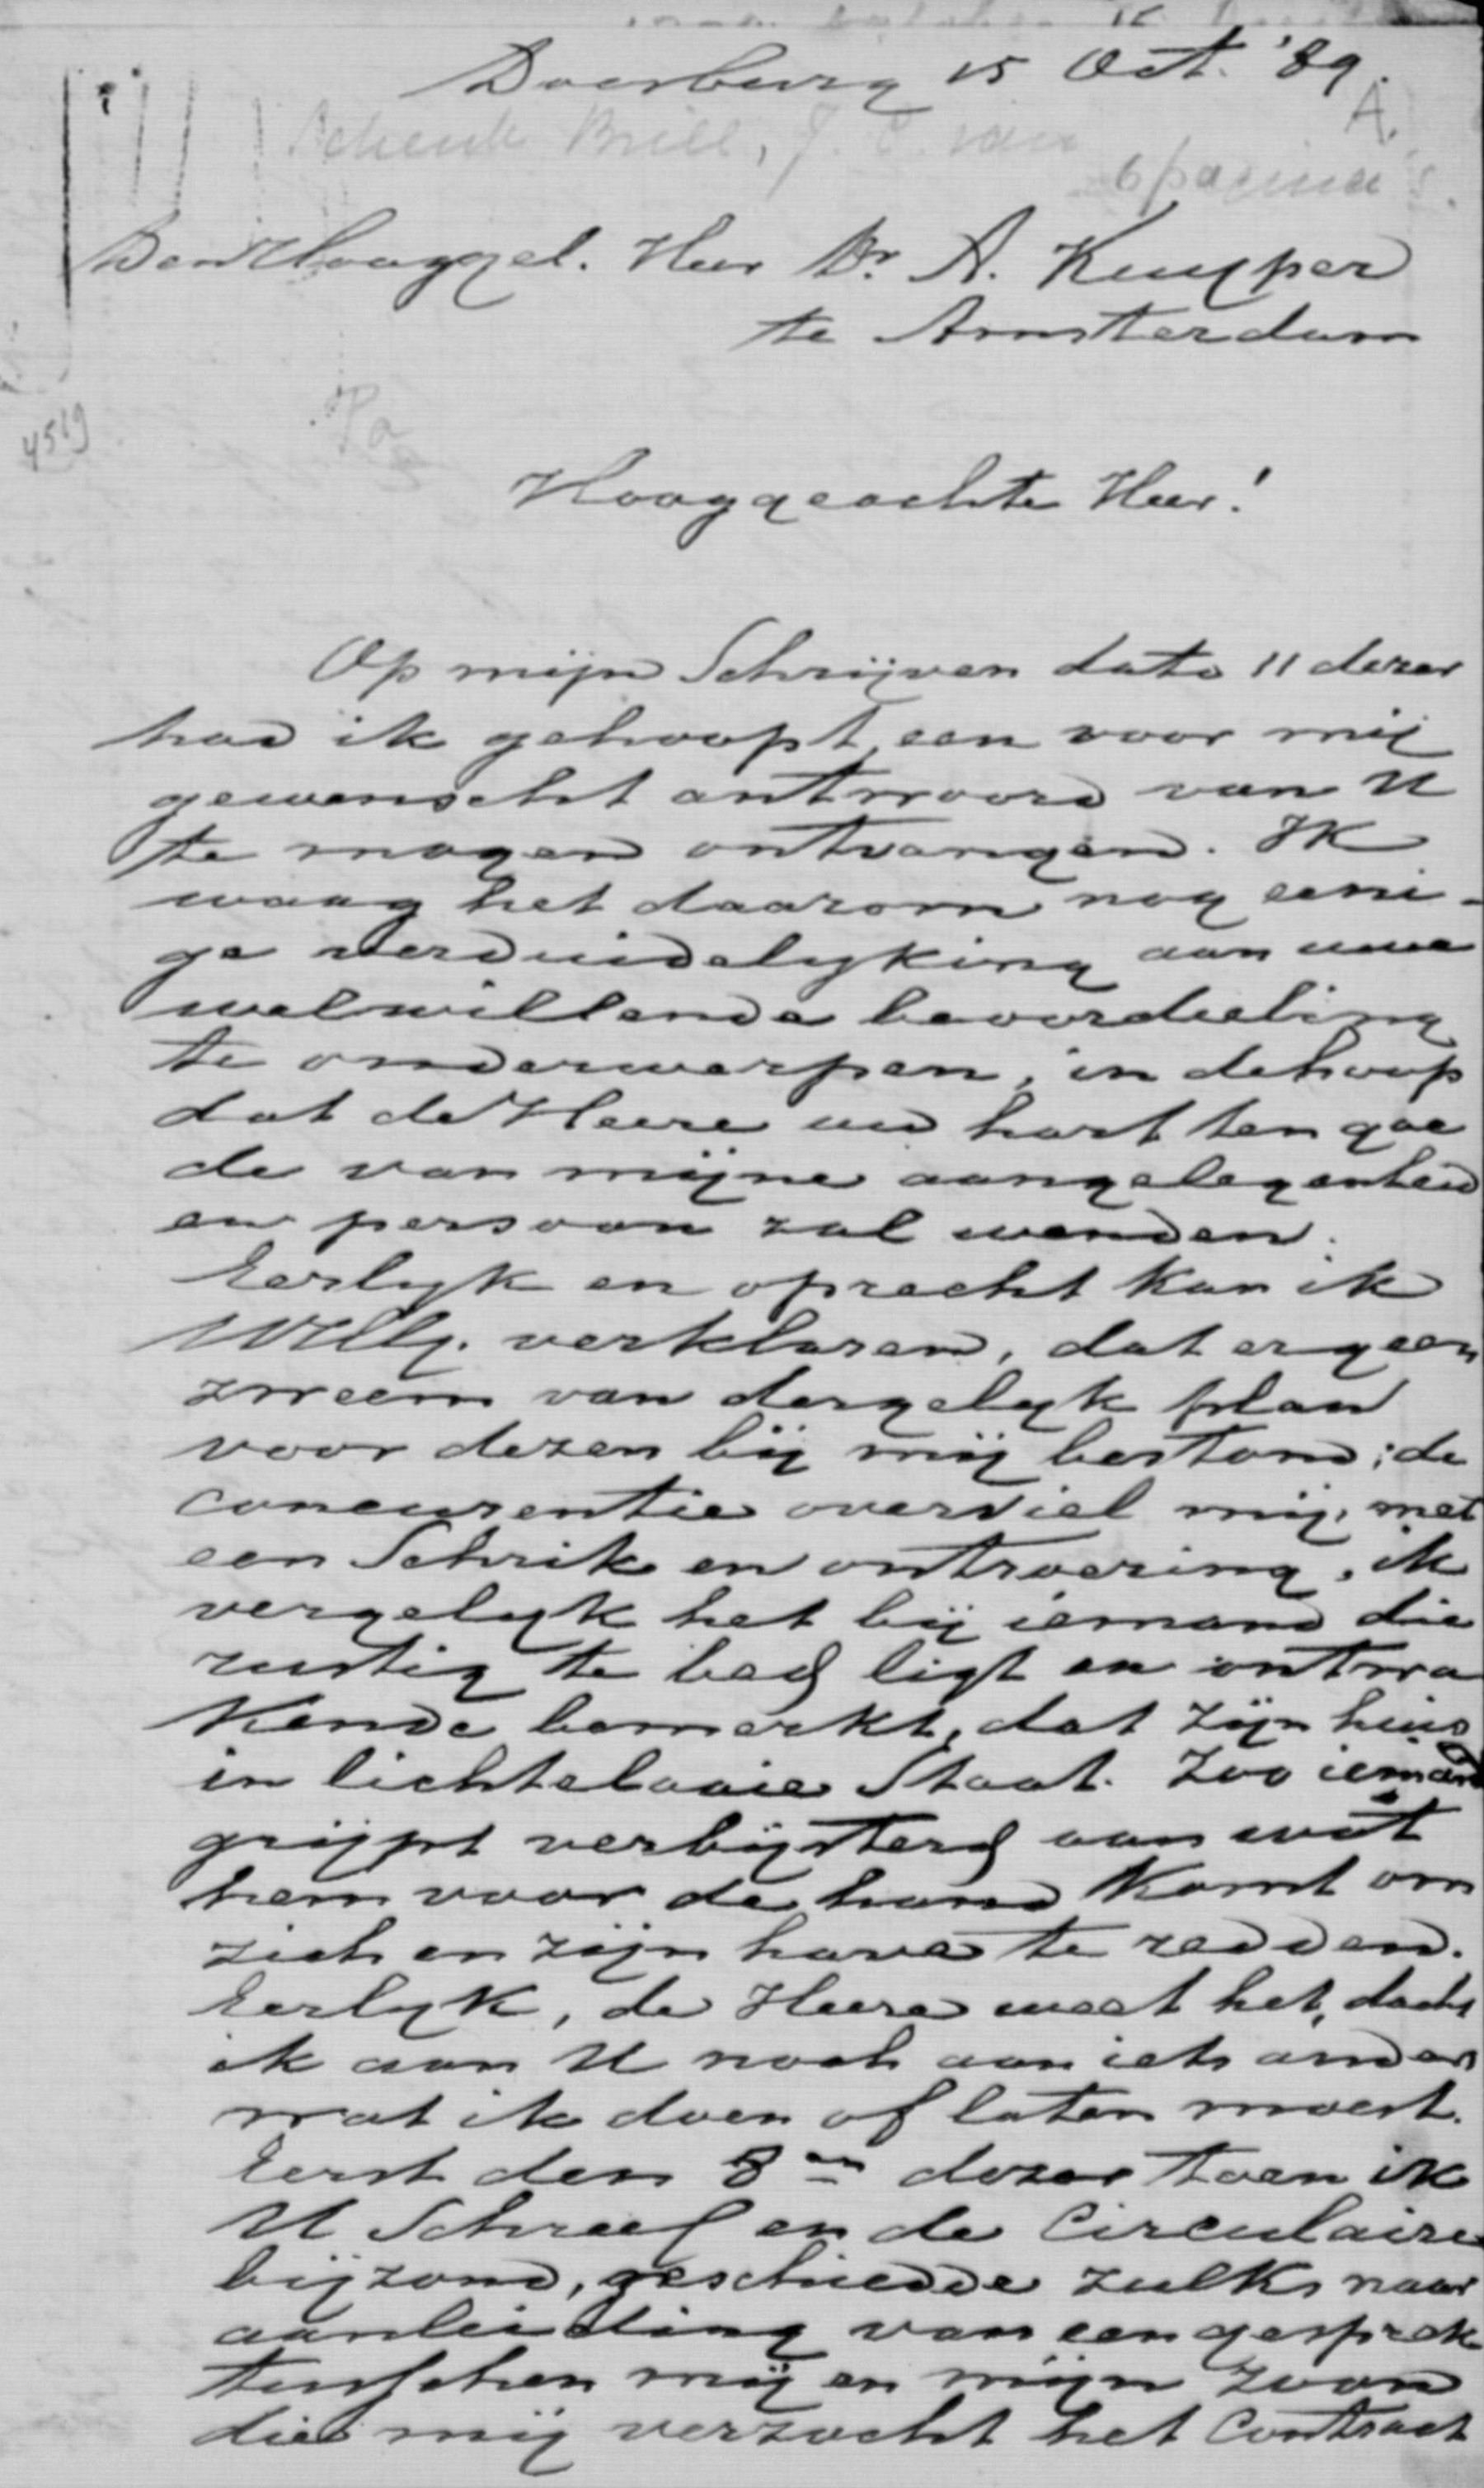 Doesburg 15 Oct. '89.
A.
Schenk Brill, J. C. van
6 pagina's.
Den Hooggel. Heer Dr. A. Kuyper
te Amsterdam
4519
Hooggeachte Heer!
Op mijn Schrijven dato 11 dezer
had ik gehoopt, een voor mij
gewenscht antwoord van U
te mogen ontvangen. Ik
waag het daarom nog eeni-
ge verduidelyking aan uwe
welwillende beoordeeling
te onderwerpen, in de hoop
dat de Heere uw hart ten goe
de van mijne aangelegenheid
en persoon zal wenden.
Eerlyk en oprecht kan ik
UHEG. verklaren, dat er geen
zweem van dergelyk plan
voor dezen bij mij bestond; de
concurentie overviel mij, met
een Schrik en ontroering, ik
vergelyk het bij iemand die
rustig te bed ligt en ontwa
kende bemerkt, dat zijn huis
in lichtelaaie Staat. Zoo iemand
grijpt verbijsterd aan wat
hem voor de hand komt om
zich en zijn have te redden.
Eerlyk, de Heere weet het, dacht
ik aan U noch aan iets anders
wat ik doen of laten moest.
Eerst den 8en dezer toen ik
U Schreef en de Circulaire
bijzond, geschiedde zulks naar
aanleiding van een gesprek
tusschen mij en mijn Zoon
die mij verzocht het Contract